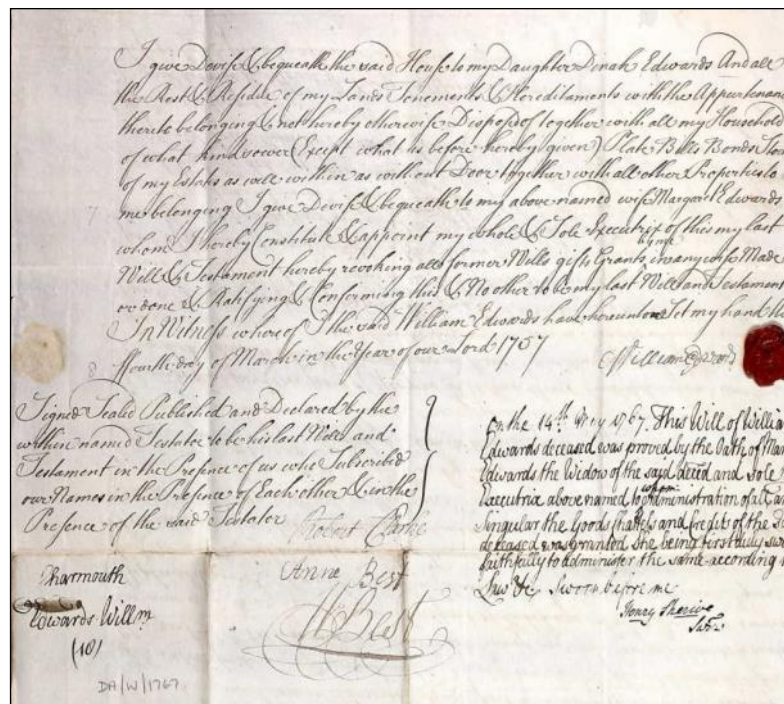 I give Devise & bequeath the said House to my Daughter Dinah Edwards And all
the Rest & Residue of my Lands Tenements & Hereditaments with the Appurtenan
thereto belonging & not hereby otherwise Disposed of together with all my Household
of what kind soever (Except what is before hereby given) Plate Bills Bonds Stoc
of my Estate as well within as without Door together with all other Properties to
me belonging I give Devise & bequeath to my above named wife Margaret Edwards
whom I hereby Constitute & appoint my whole & Sole Executrix of this my last
Will & Testament hereby revoking all former Wills gifts Grants by me in any wise Made
or done & Ratifying & Confirming this & No other to be my last Will and Testament
In Witness whereof I the said William Edwards have hereunto Set my hand
ffourth day of March in the Year of our Lord 1757
William Edwards
Signed Sealed Published and Declared by the
within named Testator to be his last Will and
Testament in the Presence of us who Subscribed
our Names in the Presence of Each other & in the
Presence of the said Testator
Robert Clarke
Anne Best
Best
On the 14th May 1767. This Will of Willia
Edwards deceased was proved by the Oath of Mar
Edwards the Widow of the said deced and sole
Executrix above named to whom Administration of all an
Singular the Goods Chattels and Credits of the
deceased was granted she being first duly swo
faithfully to administer the same according
Law &c Sworn before me
Henry Sherive
Surr
Charmouth
Edwards Willm
(18)
DA/W/1767